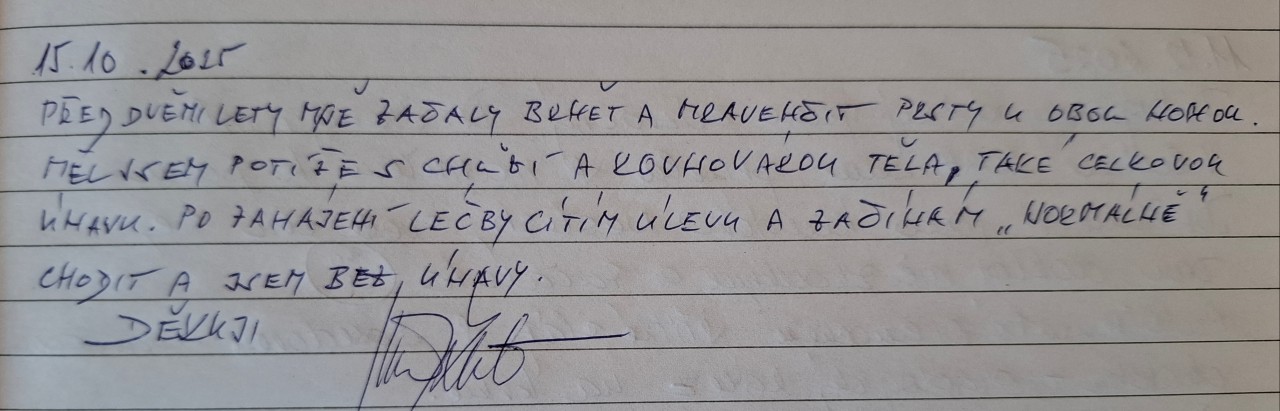 15.10.2025
PŘED DVĚMI LETY MNĚ ZAČALY BRNĚT A MRAVENČIT PRSTY U OBOU NOHOU.
MĚL JSEM POTÍŽE S CHŮZÍ A ROVNOVÁHOU TĚLA, TAKÉ CELKOVOU
ÚNAVU. PO ZAHÁJENÍ LÉČBY CÍTÍM ÚLEVU A ZAČÍNÁM „NORMÁLNĚ"
CHODIT A JSEM BEZ ÚNAVY.
DĚKUJI